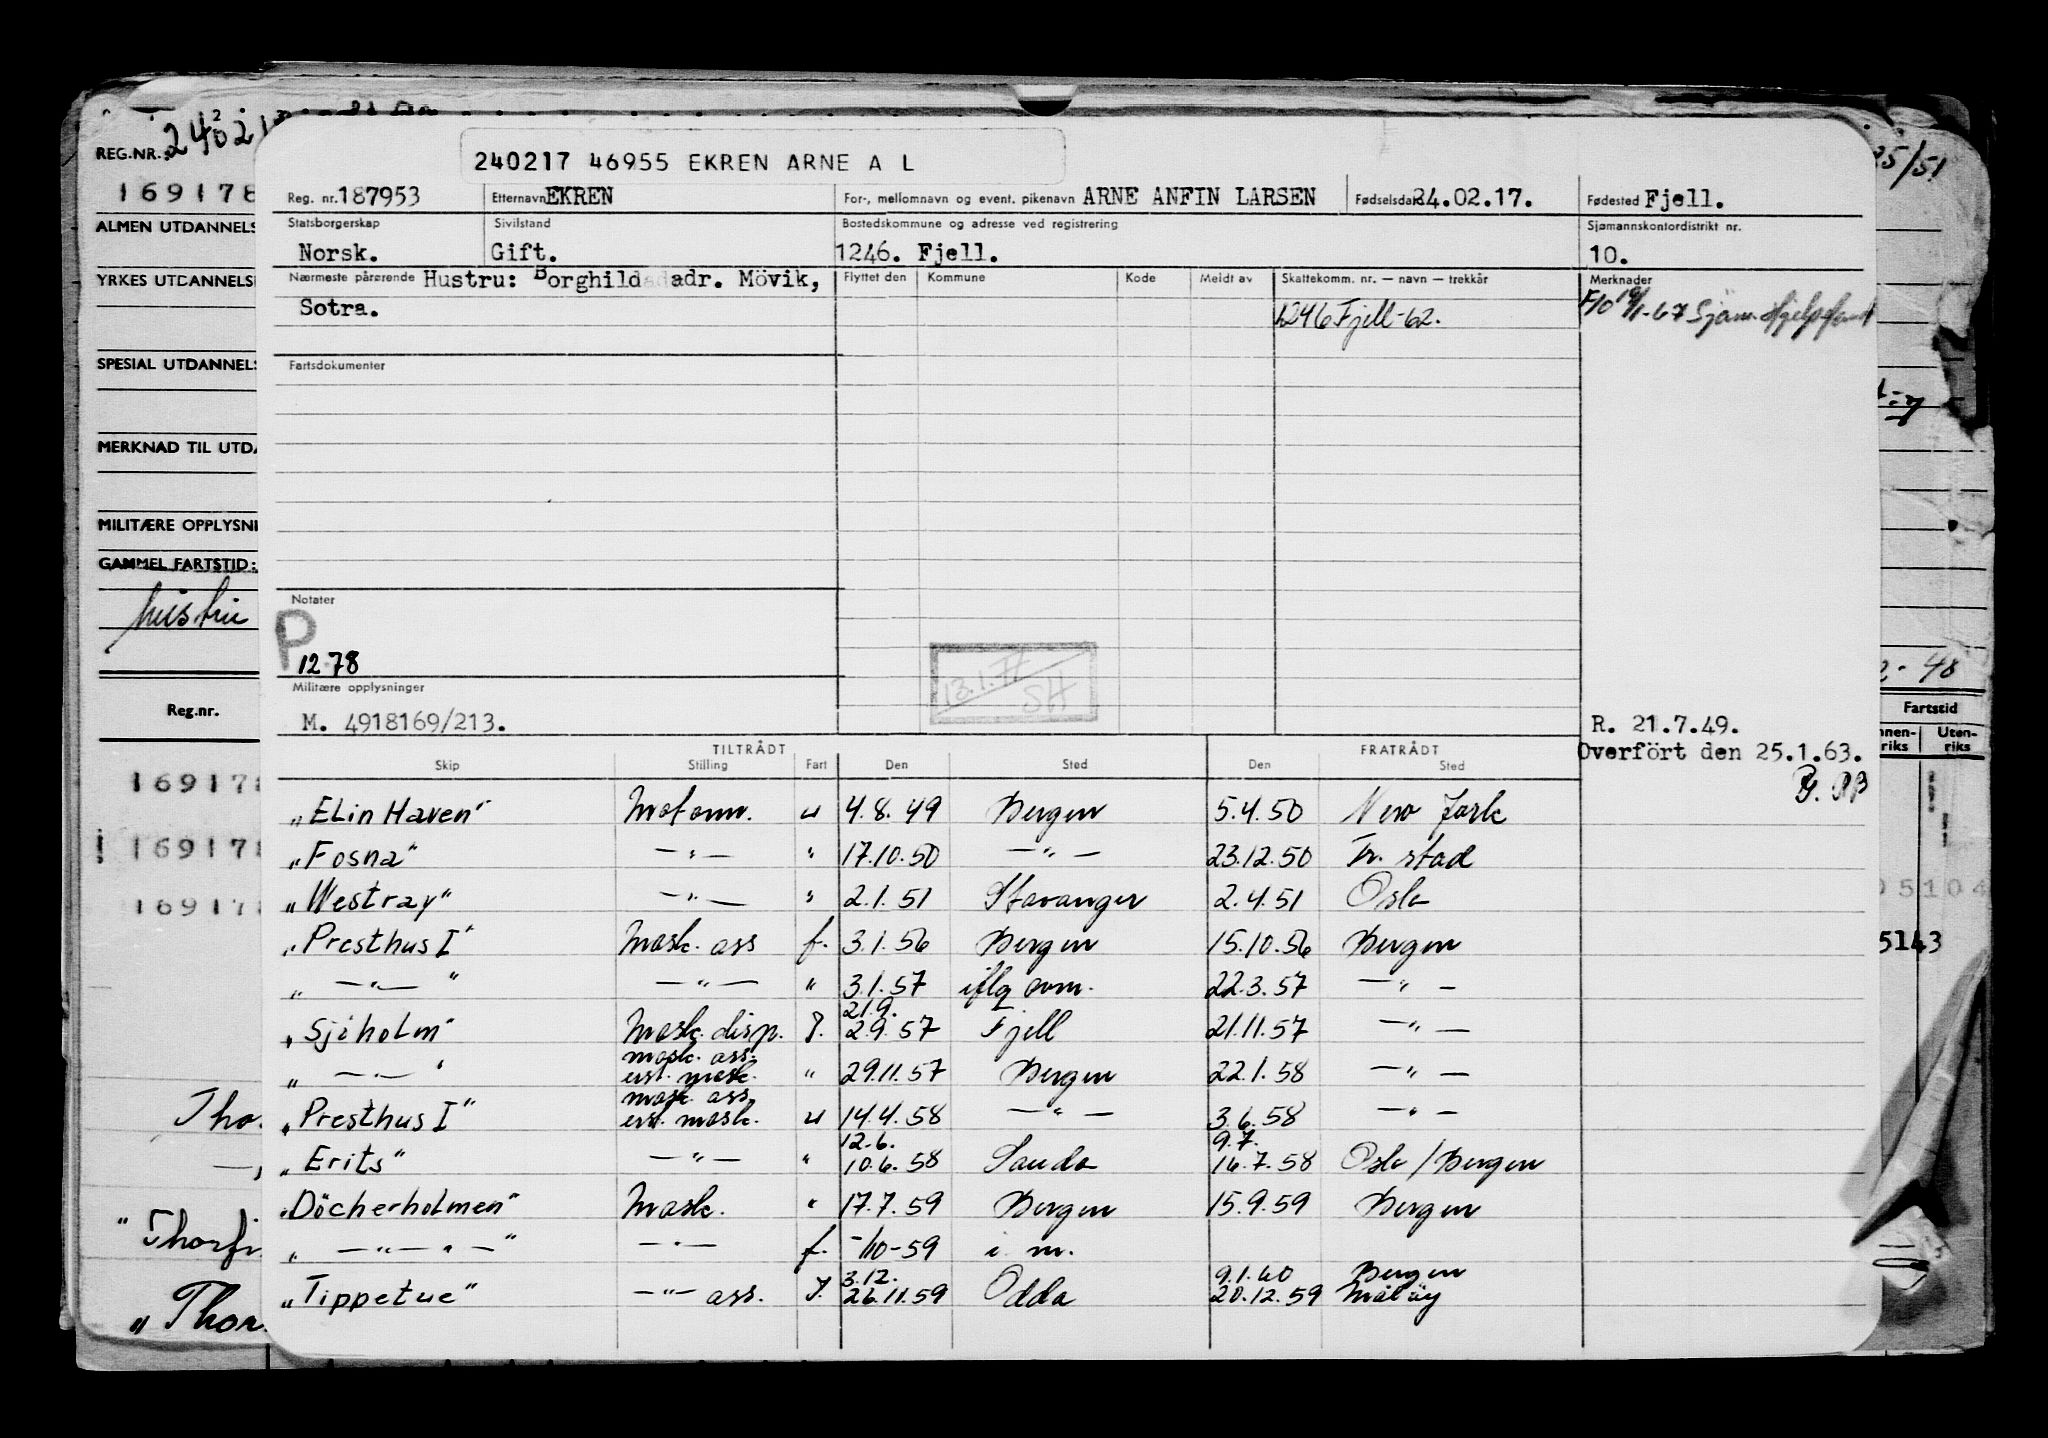 REG.NR.: 240217
25/51
169178
240217 46955 EKREN ARNE A L
Reg. nr. 187953 Etternavn EKREN For-, mellomnavn og event. pikenavn ARNE ANFIN LARSEN Fødselsdato 24.02.17. Fødested Fjell.
ALMEN UTDANNELS
Statsborgerskap Sivilstand Bostedskommune og adresse ved registrering Sjømannskontordistrikt nr.
Norsk. Gift. 1246. Fjell. 10.
YRKES UTDANNELS
Nærmeste pårørende Hustru: Borghild adr. Mövik, Flyttet den Kommune Kode Meldt av Skattekomm. nr. — navn — trekkår Merknader
Sotra. 1246 Fjell-62. F10 19/1-67 Sjøm. Hjelpefond
SPESIAL UTDANNELS
Fartsdokumenter
MERKNAD TIL UTDA
MILITÆRE OPPLYSNI
GAMMEL FARTSTID:
hustru
Notater
P
12 78
13.1.77
SH
2-48
Militære opplysninger
M. 4918169/213.
Reg.nr.
Fartstid
nnen-riks Uten-riks
R. 21.7.49.
Overfört den 25.1.63.
TILTRÅDT FRATRÅDT
Skip Stilling Fart Den Sted Den Sted
169178
"Elin Haven" Motorm. u 4.8.49 Bergen 5.4.50 New York
"Fosna" —"— " 17.10.50 —"— 23.12.50 Fr. stad
169178
"Westray" —"— " 2.1.51 Stavanger 2.4.51 Oslo
169178
05104
"Presthus I" Mask. ass f. 3.1.56 Bergen 15.10.56 Bergen
5143
" —"— " —"— " 3.1.57 iflg om. 22.3.57 —"—
21.9.
"Sjöholm" Mask. disp. I. 2.9.57 Fjell 21.11.57 —"—
mask. ass.
" —"— " erst. mask. " 29.11.57 Bergen 22.1.58 —"—
mask. ass
"Presthus I" erst. mask. u 14.4.58 —"— 3.6.58 —"—
Tho
12.6. 9.7.
"Erits" —"— " 10.6.58 Sauda 16.7.58 Oslo / Bergen
"Döcherholmen" Mask. " 17.7.59 Bergen 15.9.59 Bergen
"Thorfi
" —"—"—" —"— f. -/10-59 i m.
3.12. 9.1.60 Bergen
"Tippetue" —"— ass. I. 26.11.59 Odda 20.12.59 Måløy
"Thor